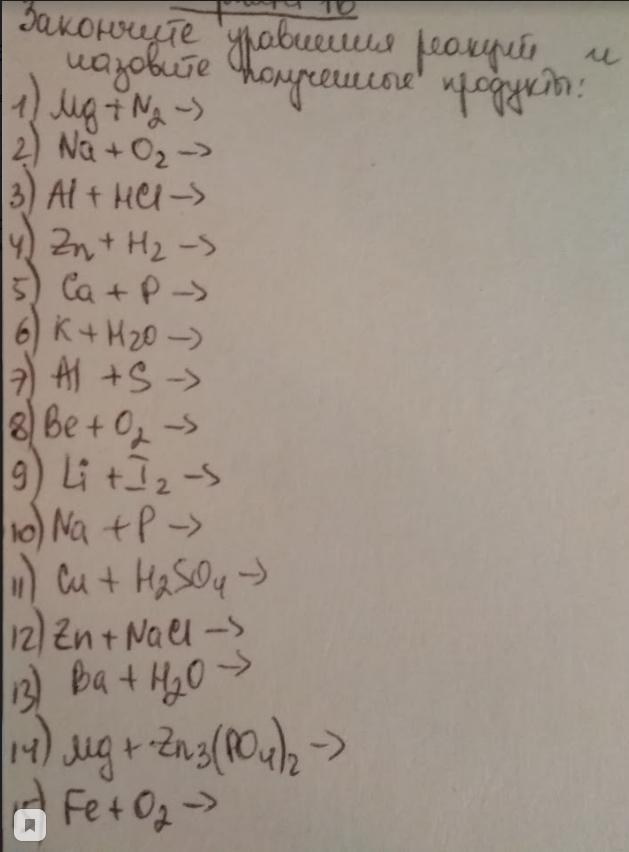 Закончите уравнения реакций и
назовите полученные продукты:
1) Mg + N2 ->
2) Na + O2 ->
3) Al + HCl ->
4) Zn + H2 ->
5) Ca + P ->
6) K + H2O ->
7) Al + S ->
8) Be + O2 ->
9) Li + I2 ->
10) Na + P ->
11) Cu + H2SO4 ->
12) Zn + NaCl ->
13) Ba + H2O ->
14) Mg + Zn3(PO4)2 ->
15) Fe + O2 ->